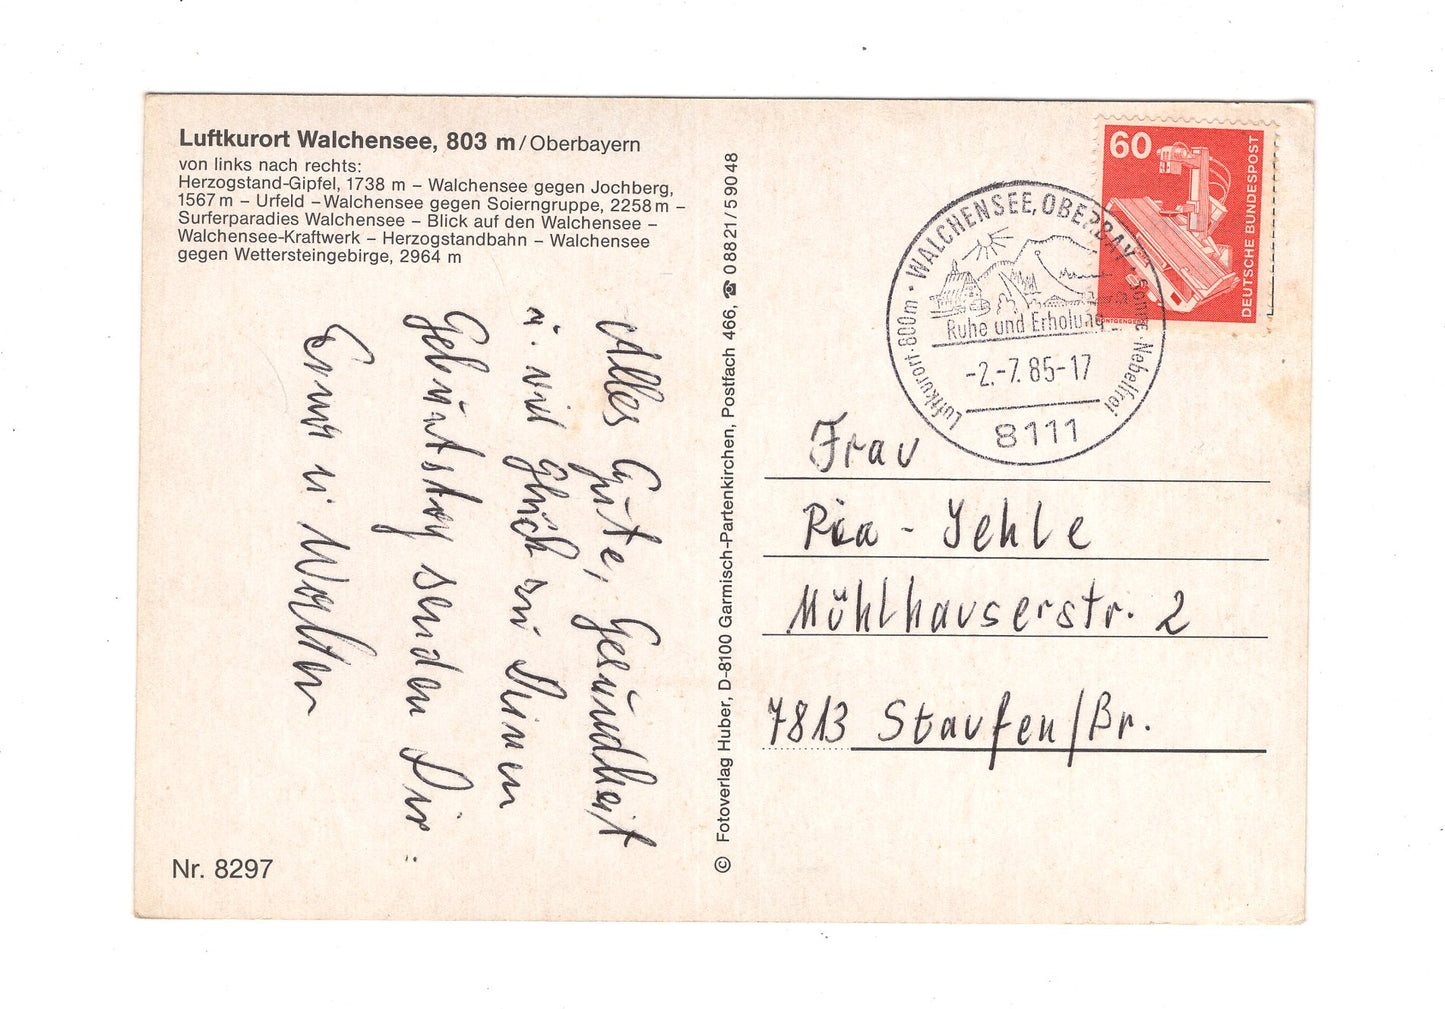 Luftkurort Walchensee, 803 m/Oberbayern
von links nach rechts:
Herzogstand-Gipfel, 1738 m – Walchensee gegen Jochberg,
1567 m – Urfeld – Walchensee gegen Soierngruppe, 2258 m –
Surferparadies Walchensee – Blick auf den Walchensee –
Walchensee-Kraftwerk – Herzogstandbahn – Walchensee
gegen Wettersteingebirge, 2964 m
Alles Gute, Gesundheit
u. viel Glück zu Deinem
Geburtstag senden Dir
Erna u. Walter
Nr. 8297
© Fotoverlag Huber, D-8100 Garmisch-Partenkirchen, Postfach 466, ☎ 08821/59048
60
DEUTSCHE BUNDESPOST
WALCHENSEE, OBERBAY.
Luftkurort · 800m · Sonne · Nebelfrei
Ruhe und Erholung
-2.-7.85-17
8111
Frau
Pia - Jehle
Mühlhauserstr. 2
7813 Staufen/Br.